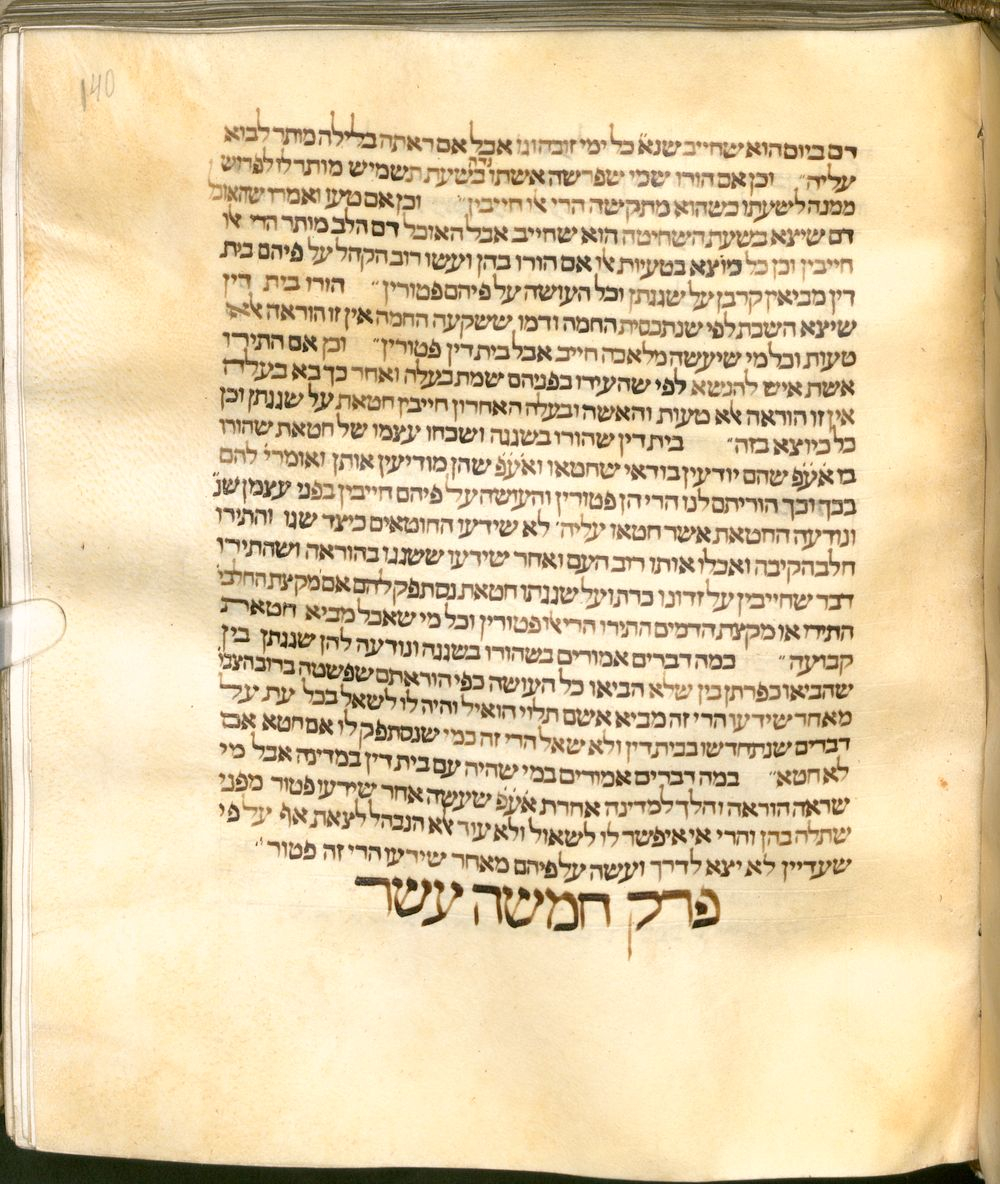 140
דם ביום הוא שחייב שנא' כל ימי זובה וגו' אבל אם ראתה בלילה מותר לבוא
עליה" וכן אם הורו שמי שפרשה אשתו נדה בשעת תשמיש מותר לו לפרוש
ממנה לשעתו כשהוא מתקישה הרי אלו חייבין" וכן אם טעו ואמרו שהאוכל
דם שיצא בשעת השחיטה הוא שחייב אבל האוכל דם הלב מותר הרי אלו
חייבין וכן כל כיוצא בטעיות אלו אם הורו בהן ועשו רוב הקהל על פיהם בית
דין מביאין קרבן על שגגתן וכל העושה על פיהם פטורין" הורו בית דין
שיצא השבת לפי שנתכסית החמה ודמו ששקעה החמה אין זו הוראה אלא
טעות וכל מי שיעשה מלאכה חייב אבל בית דין פטורין" וכן אם התירו
אשת איש להנשא לפי שהעידו בפניהם שמת בעלה ואחר כך בא בעלה
אין זו הוראה אלא טעות והאשה ובעלה האחרון חייבין חטאת על שגגתן וכן
כל כיוצא בזה" בית דין שהורו בשגגה ושכחו עצמו של חטאת שהורו
בו אע'פ שהם יודעין בודאי שחטאו ואע'פ שהן מודיעין אותן ואומרי' להם
בכך וכך הוריתם לנו הרי הן פטורין והעושה על פיהם חייבין בפני עצמן שנ'
ונודעה החטאת אשר חטאו עליה' לא שידעו החוטאים כיצד שגו והתירו
חלב הקיבה ואכלו אותו רוב העם ואחר שידעו ששגגו בהוראה ושהתירו
דבר שחייבין על זדונו כרת ועל שגגתו חטאת נסתפק להם אם מקצת החלבי'
התירו או מקצת הדמים התירו הרי אלו פטורין וכל מי שאכל מביא חטאת
קבועה" במה דברים אמורים בשהורו בשגגה ונודעה להן שגגתן בין
שהביאו כפרתן בין שלא הביאו כל העושה כפי הוראתם שפשטה ברוב הצבו'
מאחר שידעו הרי זה מביא אשם תלוי הואיל והיה לו לשאל בכל עת על
דברים שנתחדשו בבית דין ולא שאל הרי זה כמי שנסתפק לו אם חטא אם
לא חטא" במה דברים אמורים במי שהיה עם בית דין במדינה אבל מי
שראה הוראה והלך למדינה אחרת אע'פ שעשה אחר שידעו פטור מפני
שתלה בהן והרי אי איפשר לו לשאול ולא עוד אלא הנבהל לצאת אף על פי
שעדיין לא יצא לדרך ועשה על פיהם מאחר שידעו הרי זה פטור"
פרק חמשה עשר